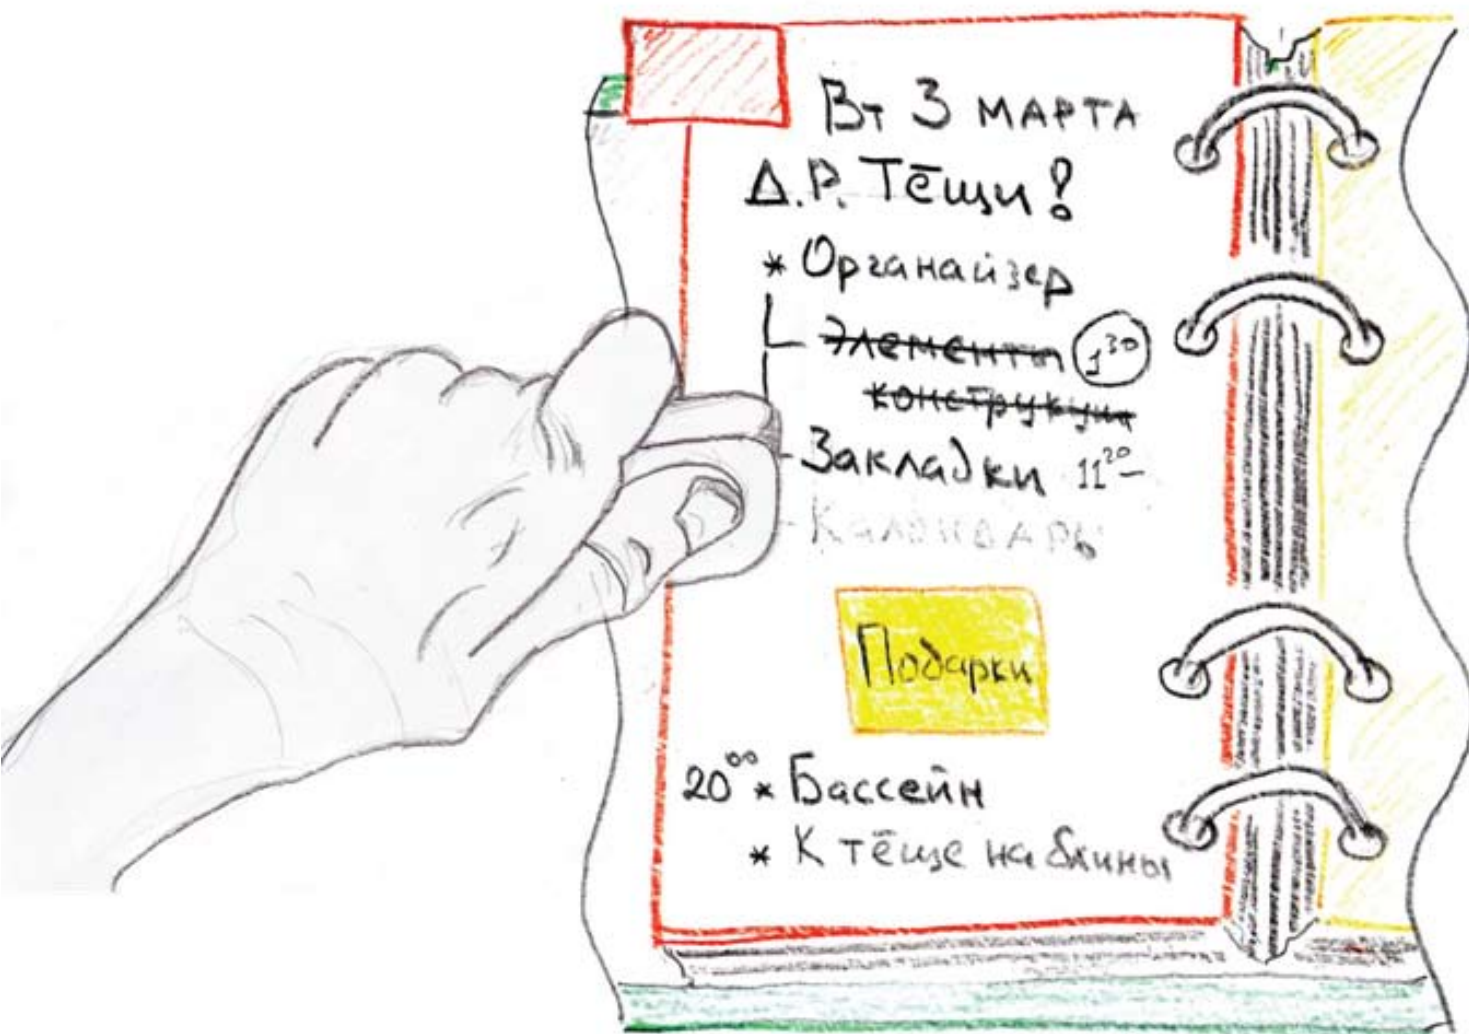 Вт 3 марта
Д.Р. Тёщи!
* Органайзер
Элементы 1³⁰
конструкции
- Закладки 11²⁰–
- Календарь
Подарки
20⁰⁰ * Бассейн
* К тёще на блины